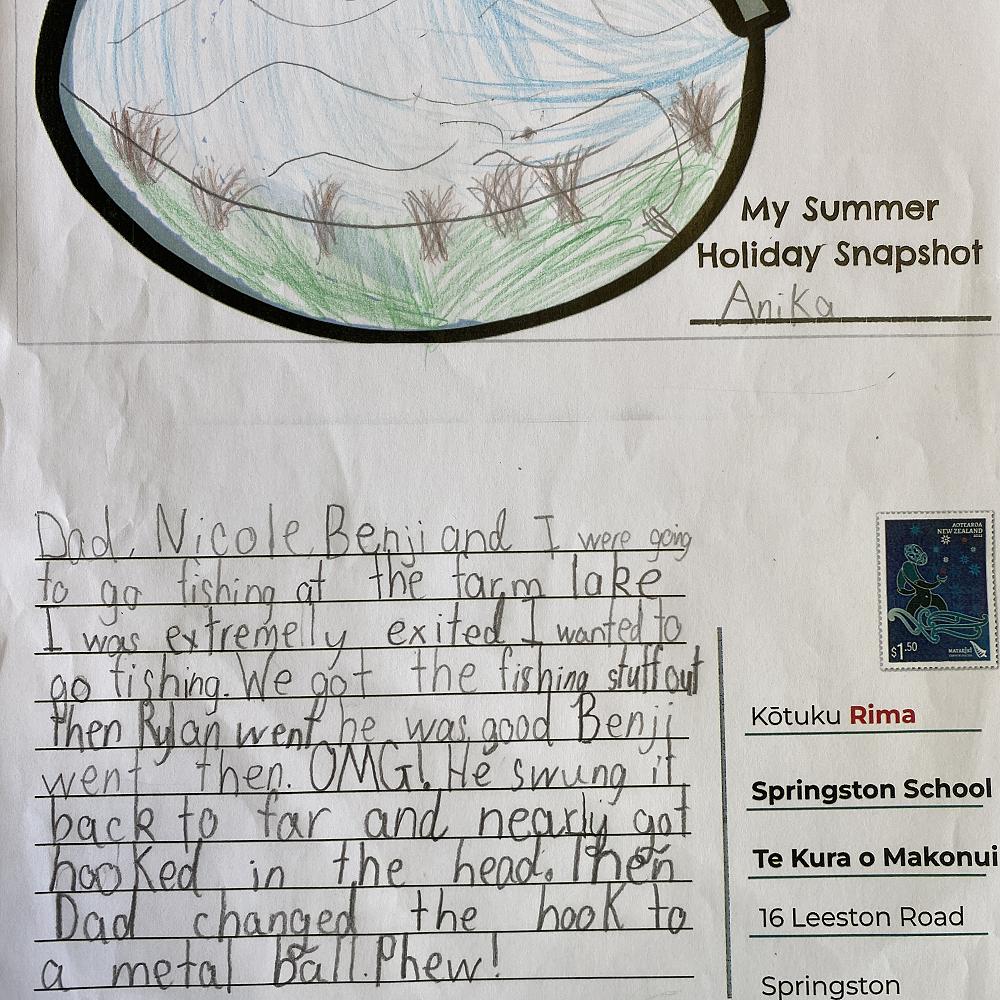 My Summer
Holiday Snapshot
Anika
Dad, Nicole, Benji and I were going
to go fishing at the farm lake
I was extremelly exited I wanted to
go fishing. We got the fishing stuff out
then Rylan went he was good Benji
went then. OMG! He swung it
back to far and nearly got
hooked in the head. Then
Dad changed the hook to
a metal ball. Phew!
AOTEAROA
NEW ZEALAND
$1.50
MATARIKI
Kōtuku Rima
Springston School
Te Kura o Makonui
16 Leeston Road
Springston